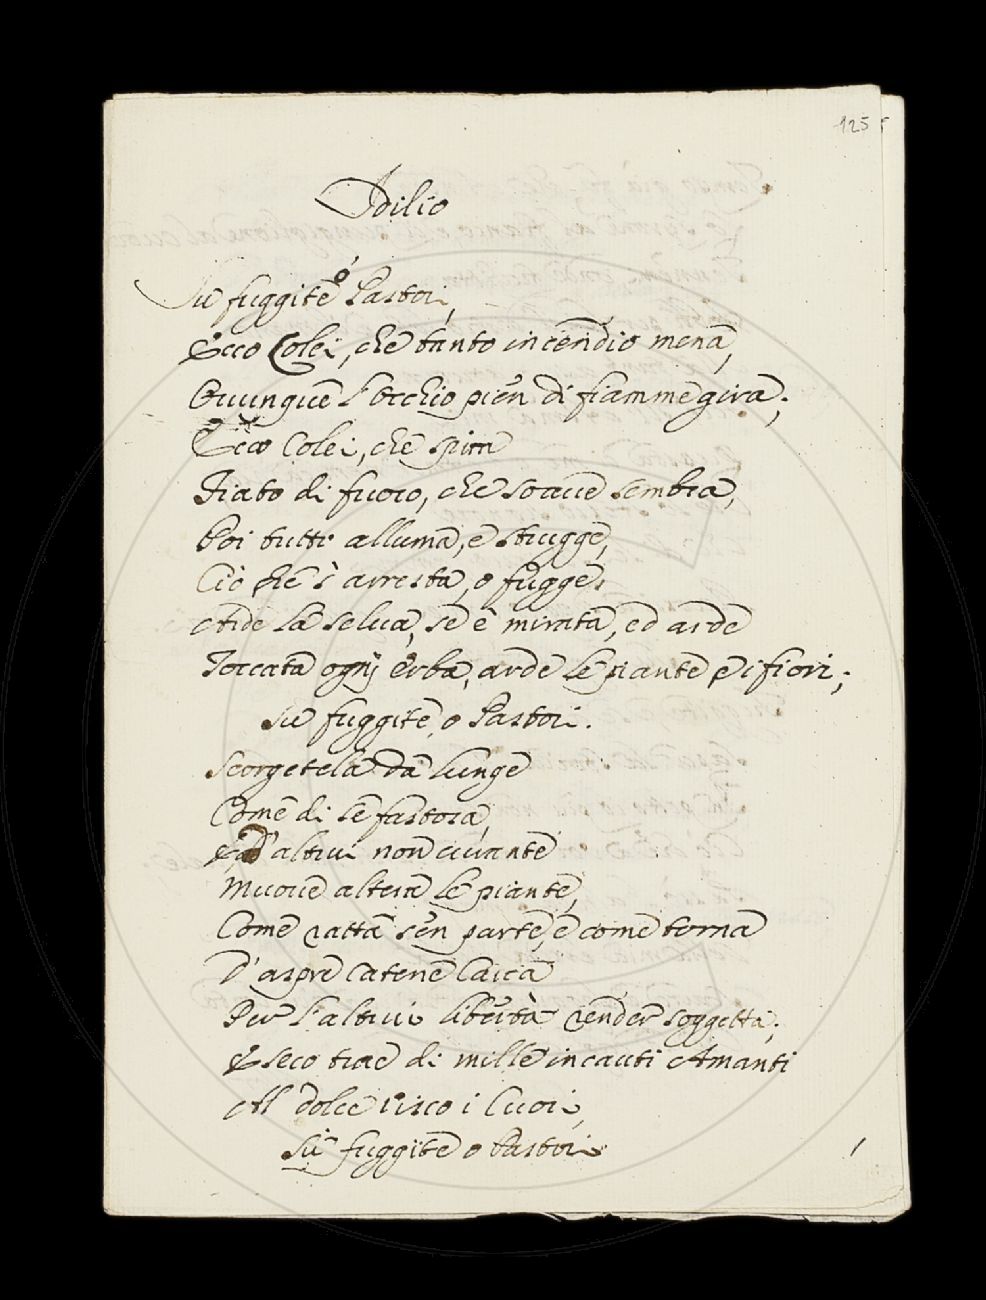 125
Idilio
Sù fuggite ò Pastori,
Ecco Colei, che tanto incendio mena,
Ovunque l'occhio pien di fiamme gira;
Ecco Colei, che spira
Fiato di fuoco, che soave sembra,
Poi tutti alluma, e strugge,
Ciò che s'arresta, o fugge,
Arde la selva, se è mirata, ed arde
Toccata ogni Erba, arde le piante e i fiori;
Su fuggite, o Pastori.
Scorgetela da lunge
Come di se fastosa,
E d'altrui non curante
Muove altera le piante,
Come ratta sen parte, e come torna
D'aspre catene carca
Per l'altrui libertà render soggetta;
E seco trae di mille incauti Amanti
Al dolce visco i Cuori,
Sù fuggite o Pastori